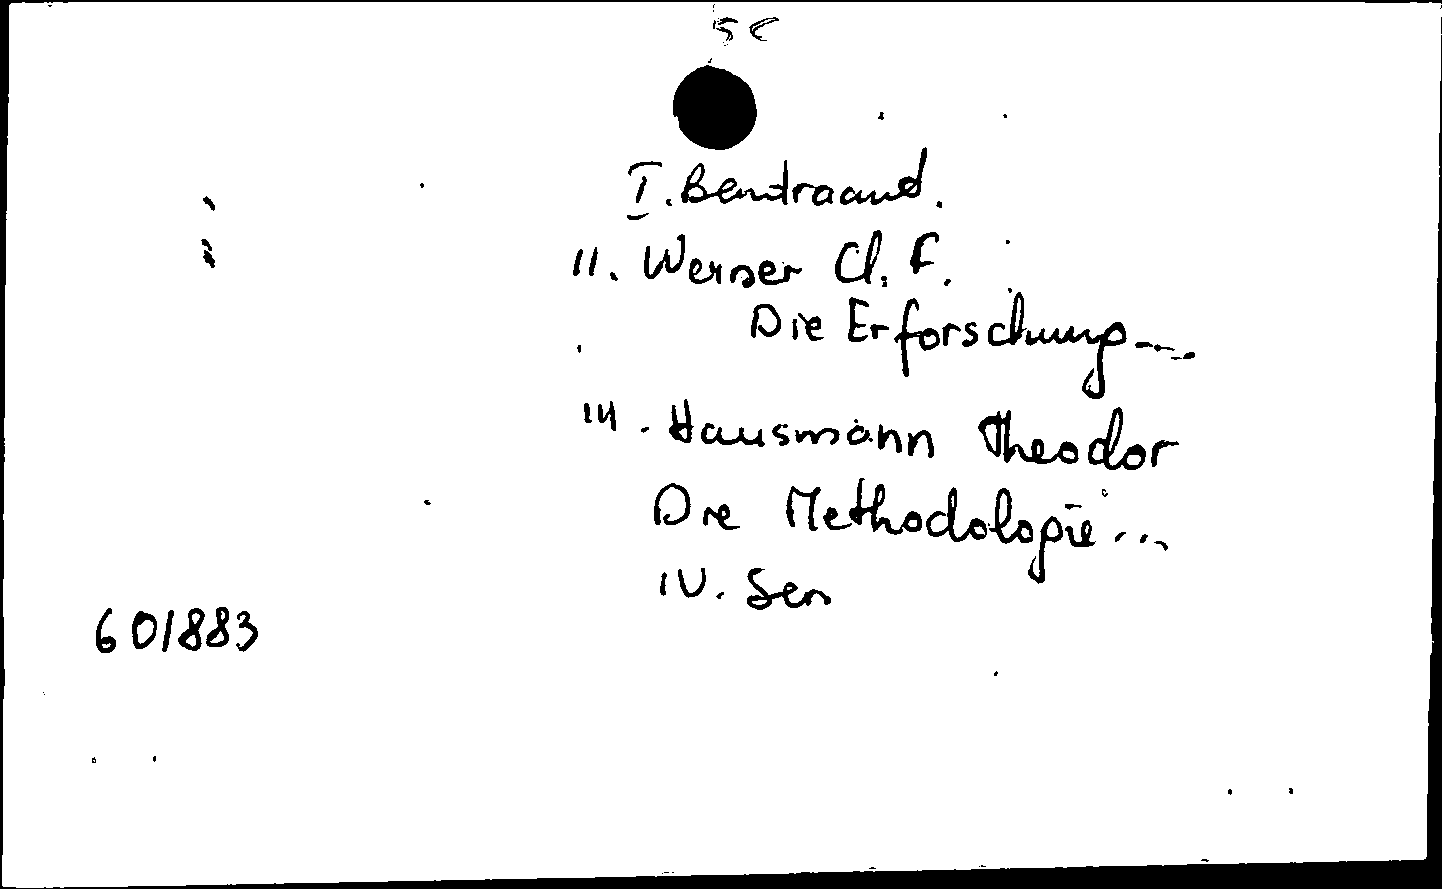 5c
I. Bentraand.
II. Werner Cl. F.
Die Erforschung...
III. Hausmann Theodor
Die Methodologie...
IV. Ser
601883